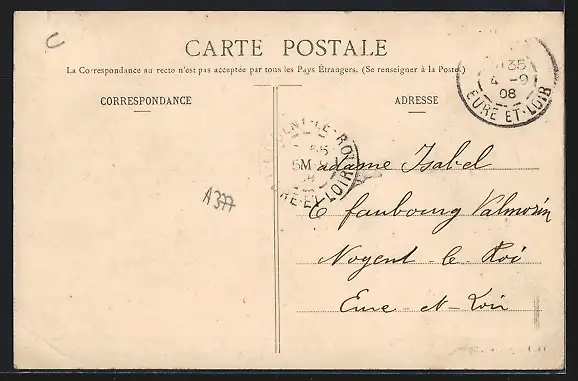 C
CARTE POSTALE
La Correspondance au recto n'est pas acceptée par tous les Pays Étrangers. (Se renseigner à la Poste.)
35
4 -9
08
EURE ET-LOIR
CORRESPONDANCE
ADRESSE
ENT-LE-RO
55
5M
EURE-ET-LOIR
Madame Isabel
6 faubourg Valmorin
Nogent-le-Roi
Eure-et-Loir
A377